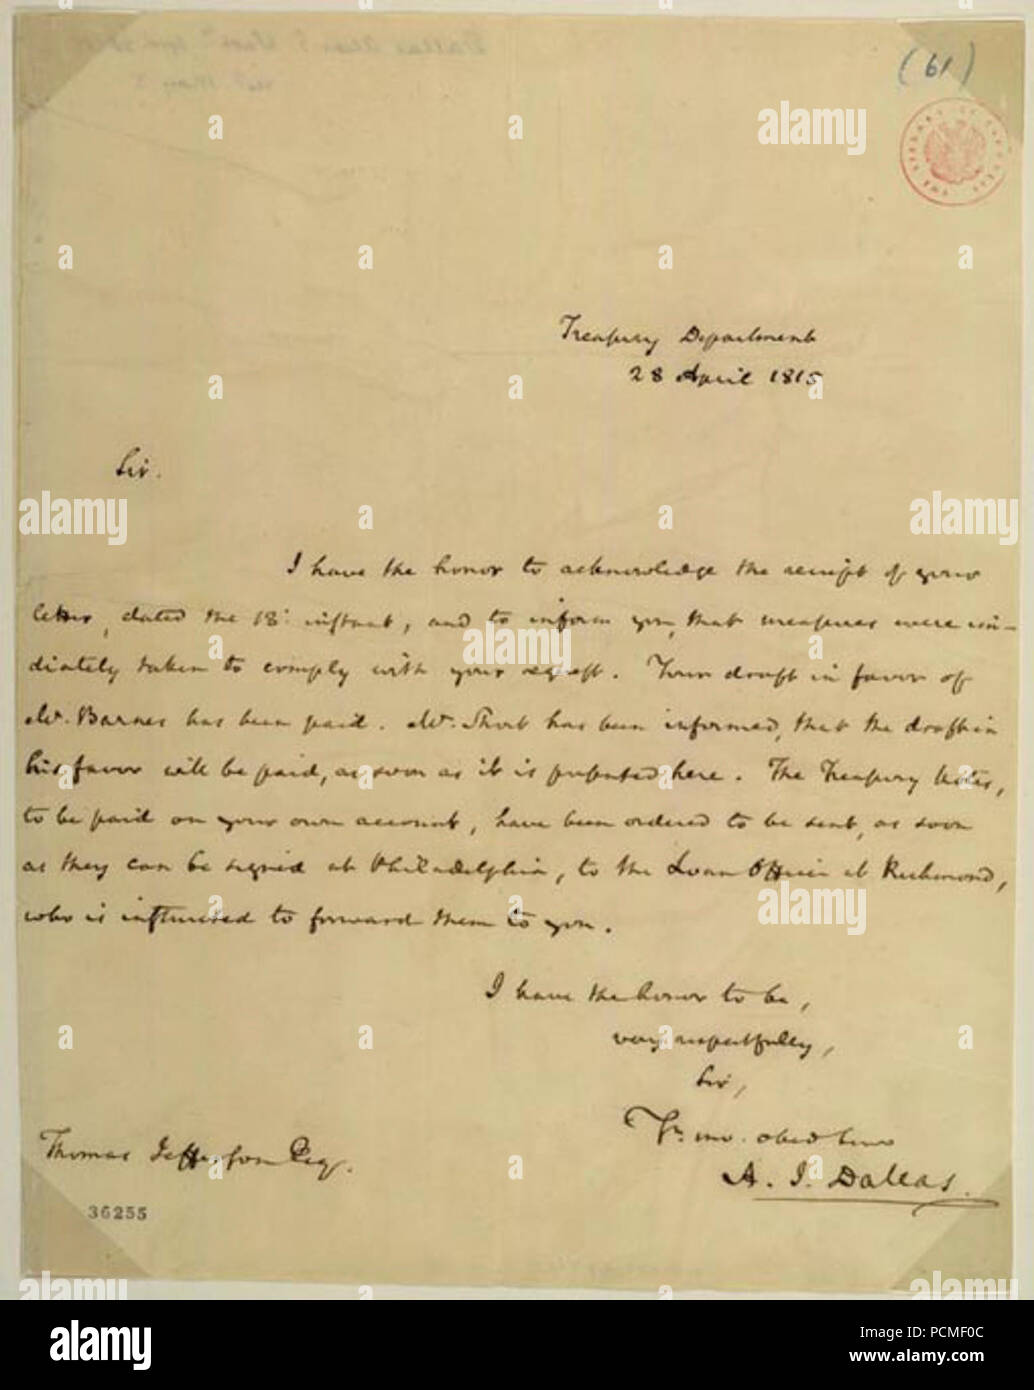 (61)
THE LIBRARY OF CONGRESS
Treasury Department
28 April 1815
Sir.
I have the honor to acknowledge the receipt of your
letter, dated the 18. instant, and to inform you, that measures were im-
diately taken to comply with your request. Your draft in favor of
Mr. Barnes has been paid. Mr. Short has been informed, that the draft in
his favor will be paid, as soon as it is presented here. The Treasury Notes,
to be paid on your own account, have been ordered to be sent, as soon
as they can be signed at Philadelphia, to the Loan Officer at Richmond,
who is instructed to forward them to you.
I have the honor to be,
very respectfully,
Sir,
Yr. mo. obed serv
A. J. Dallas.
Thomas Jefferson Esq.
36255
alamy
Image ID: PCMF0C
www.alamy.com